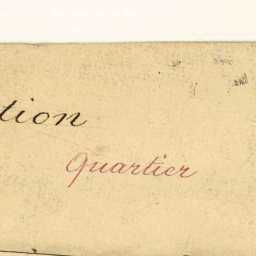 tion
Quartier